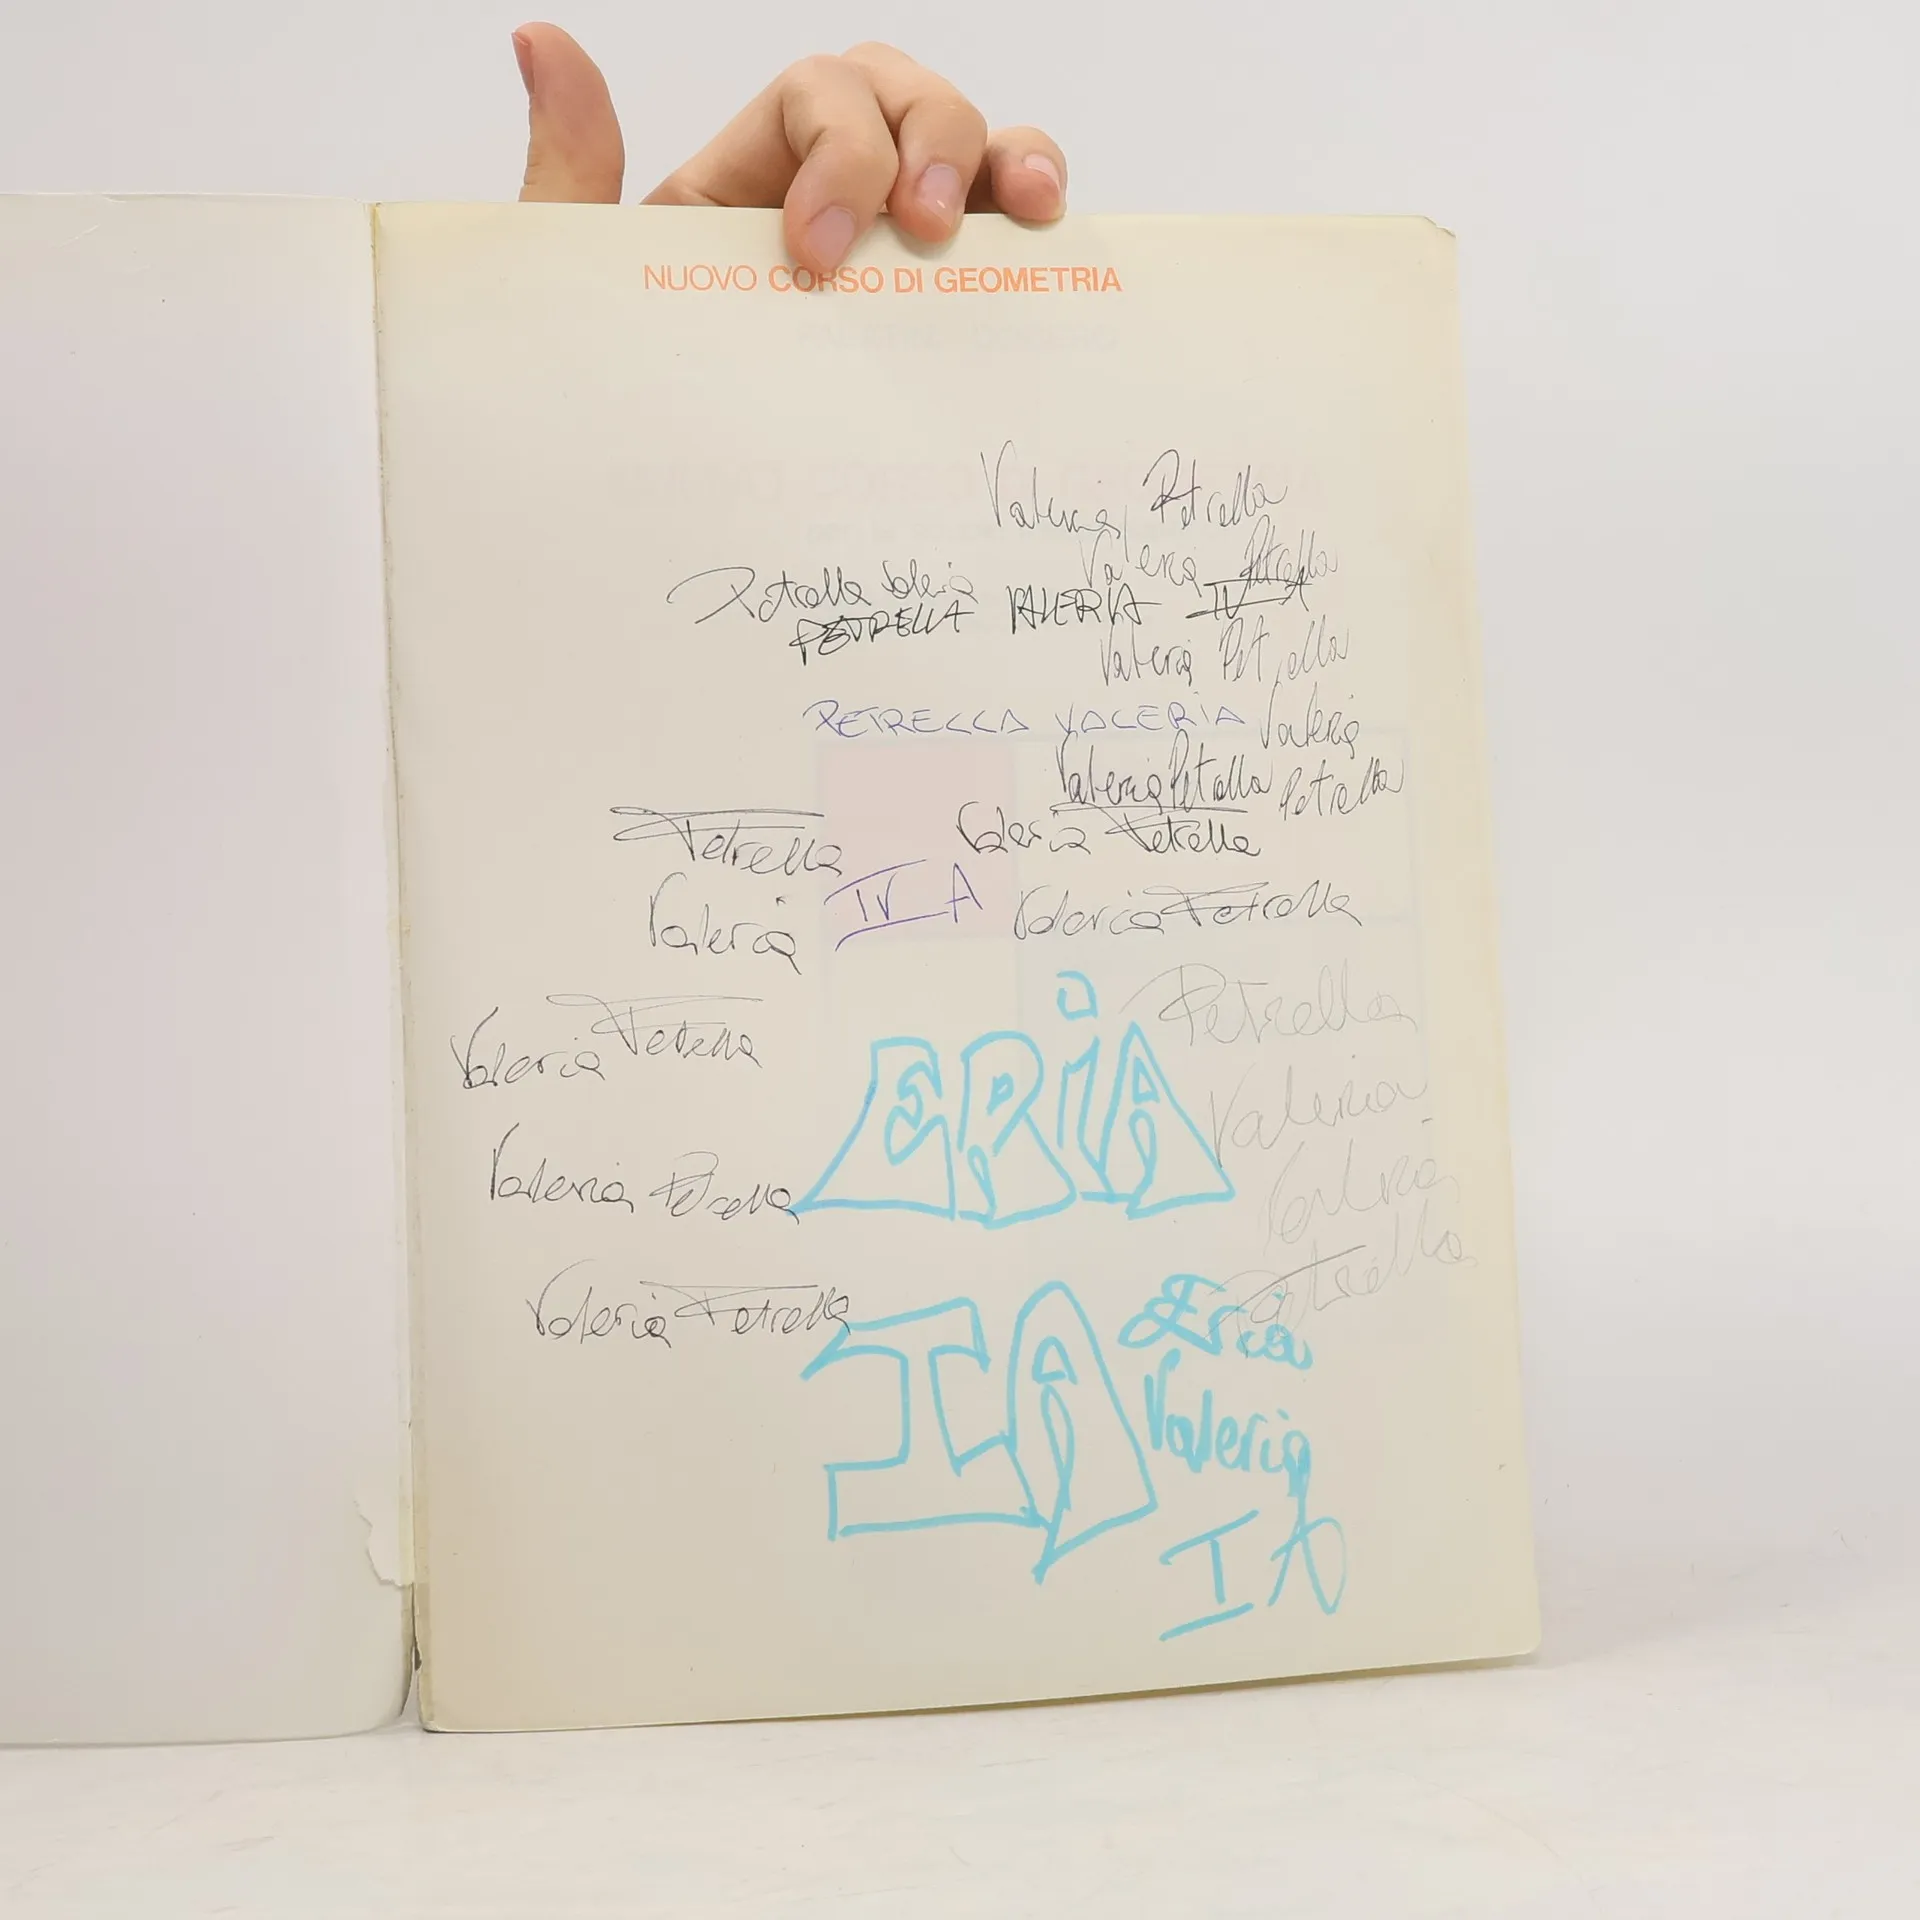 NUOVO CORSO DI GEOMETRIA
Valeria Petrella
Valeria Petrella
Petrella Valeria
PETRELLA VALERIA IV A
Valeria Petrella
PETRELLA VALERIA
Valeria
Petrella
Valeria Petrella
Petrella
Valeria Petrella
Valeria
IV A
Valeria Petrella
Valeria Petrella
Petrella
Valeria
ERiA
Valeria Petrella
Valeria
Petrella
Valeria Petrella
IA
Eria
Valeria
IA